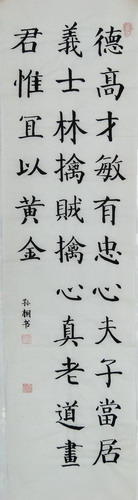 德高才敏有忠心夫子當居
義士林擒賊擒心真老道畫
君惟宜以黃金
孙桐书